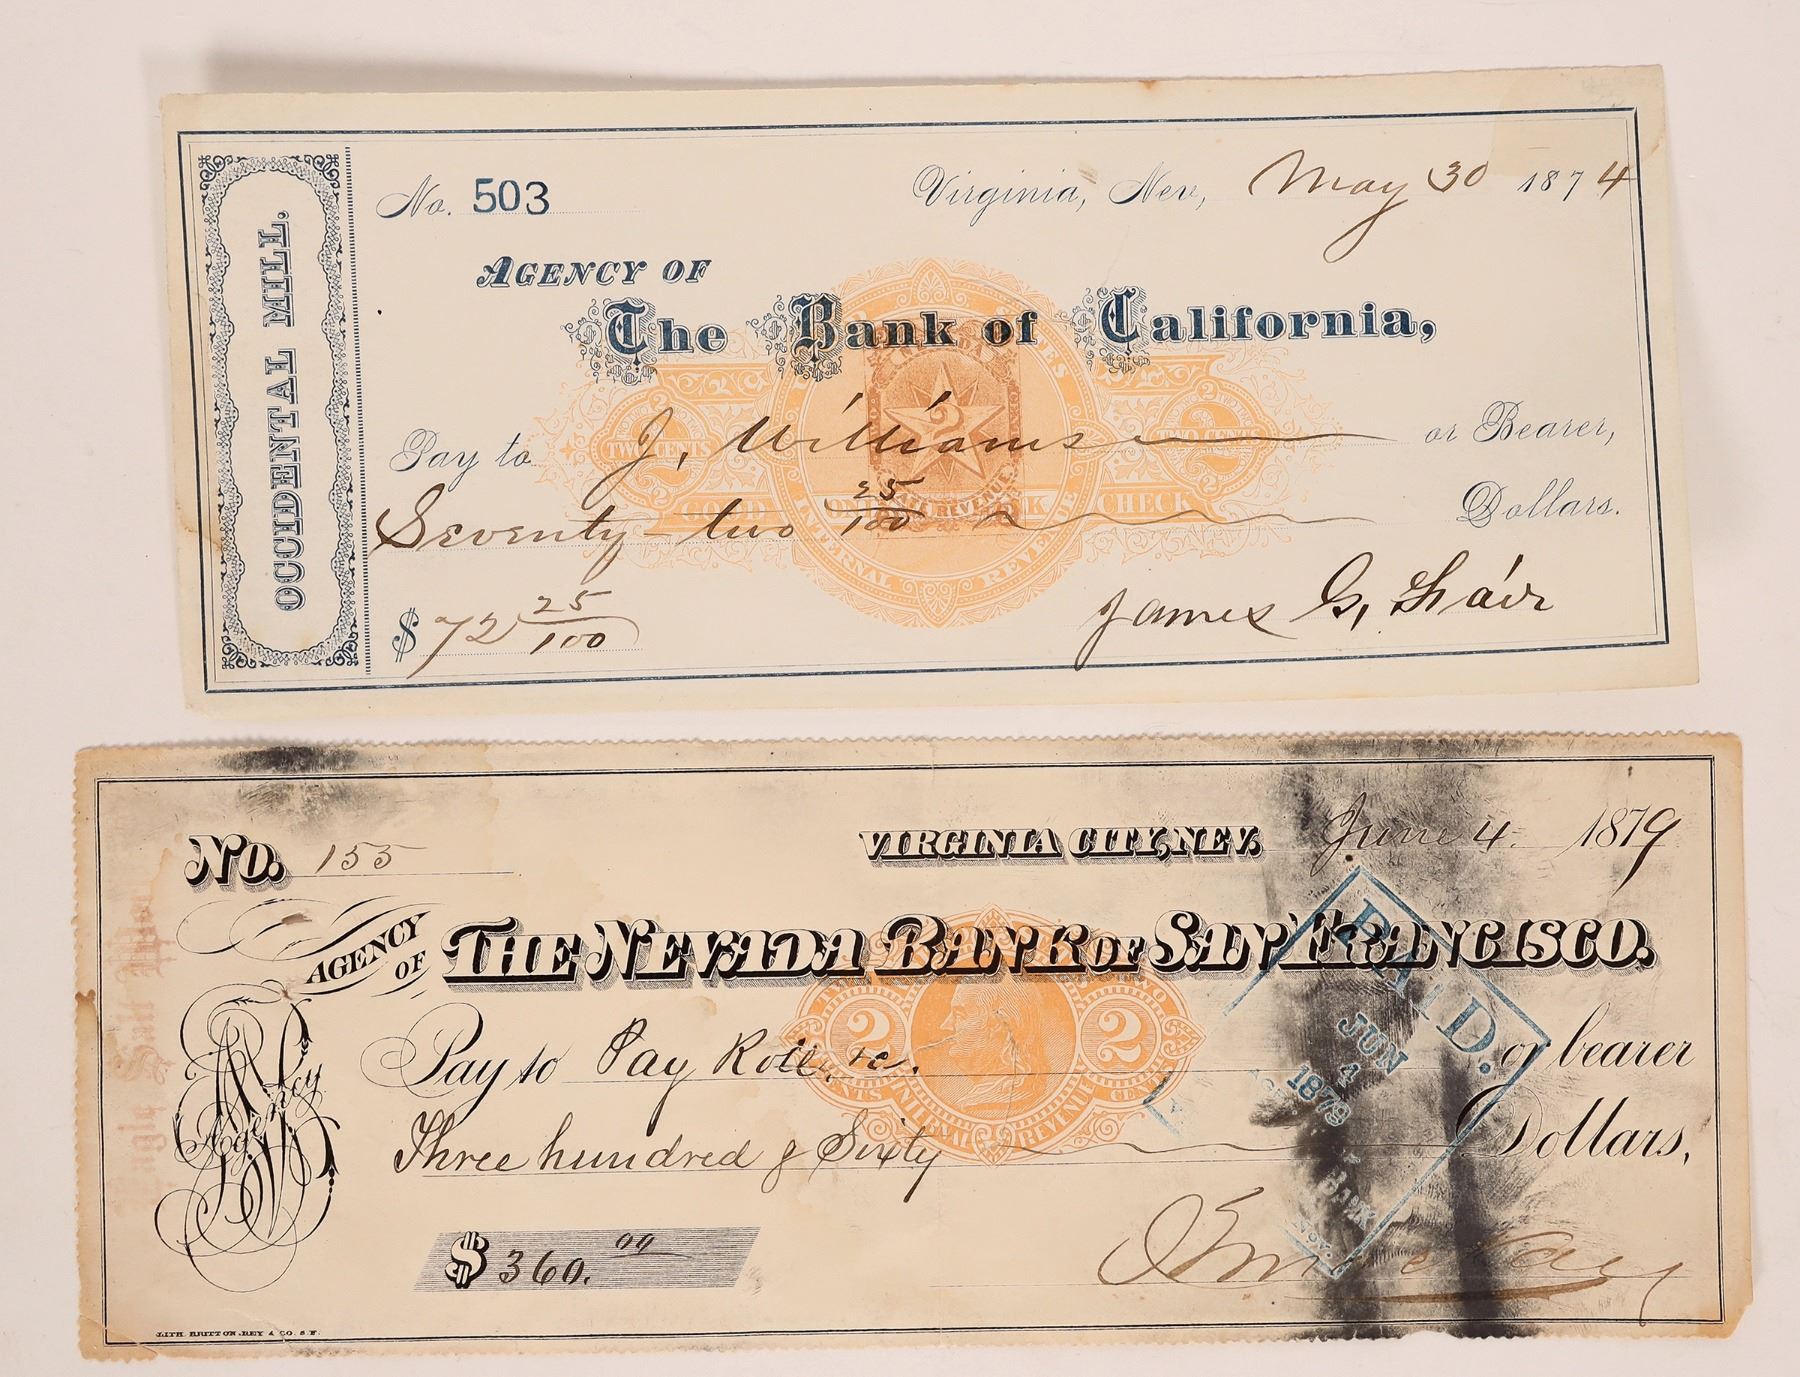 OCCIDENTAL MILL.
No. 503
Virginia, Nev, May 30 1874
AGENCY OF
The Bank of California,
Pay to J. Williams or Bearer,
Seventy-two 25/100 Dollars.
$72 25/100
James G. Fair
TWO CENTS
2
TWO CENTS
2
2
BANK REVENUE
CHECK
INTERNAL REVENUE
No. 155
VIRGINIA CITY, NEV. June 4. 1879
AGENCY OF THE NEVADA BANK OF SAN FRANCISCO.
Pay to Pay Roll &c. or bearer
Three hundred & Sixty Dollars,
$360.00
Agency
2
2
INTERNAL REVENUE
PAID.
JUN
4
1879
BANK
NEV.
LITH. BRITTON, REY & CO. S.F.